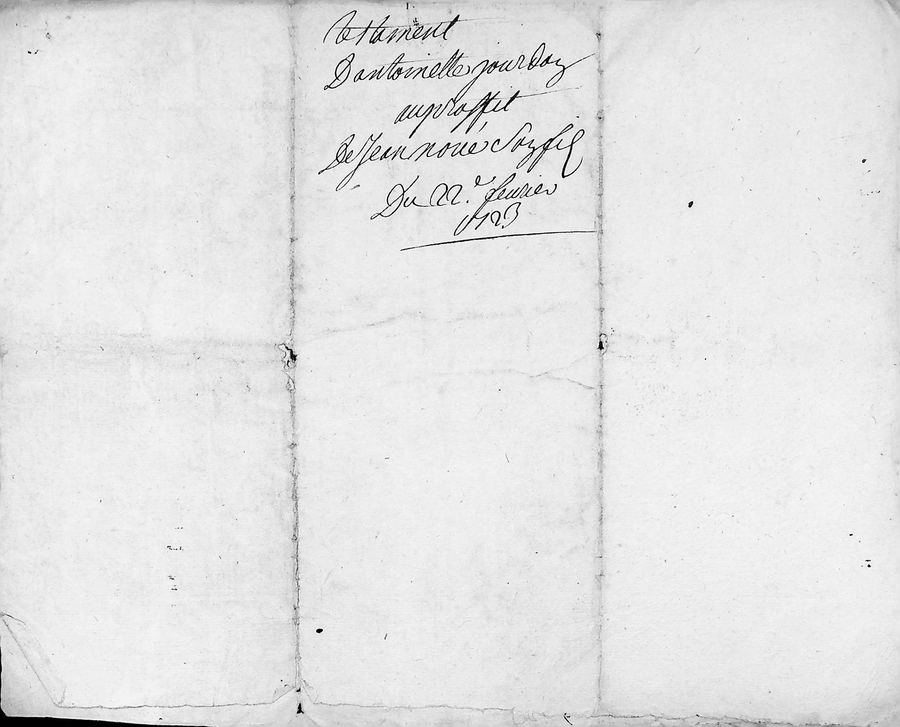 Testament
Dantoinette jourdan
au proffit
De Jean noué Son fil
Du 22.e feurier
1723